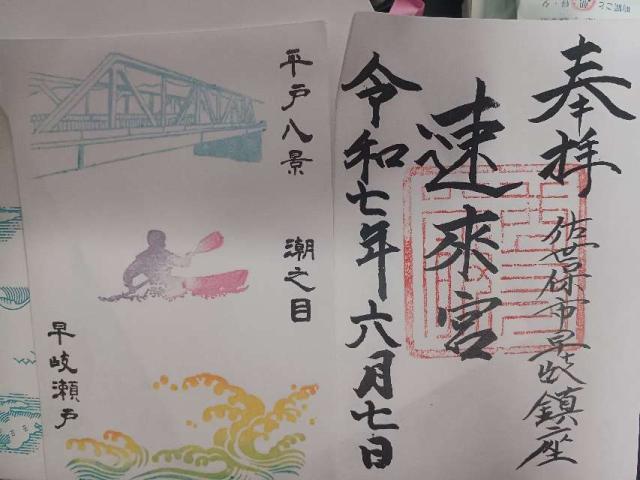 奉拝
佐世保市早岐鎮座
速来宮
令和七年六月七日
平戸八景
潮之目
早岐瀬戸